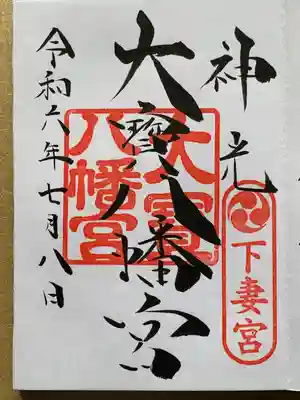 神光
下妻宮
大寶八幡宮
大寶八幡宮
令和六年七月八日